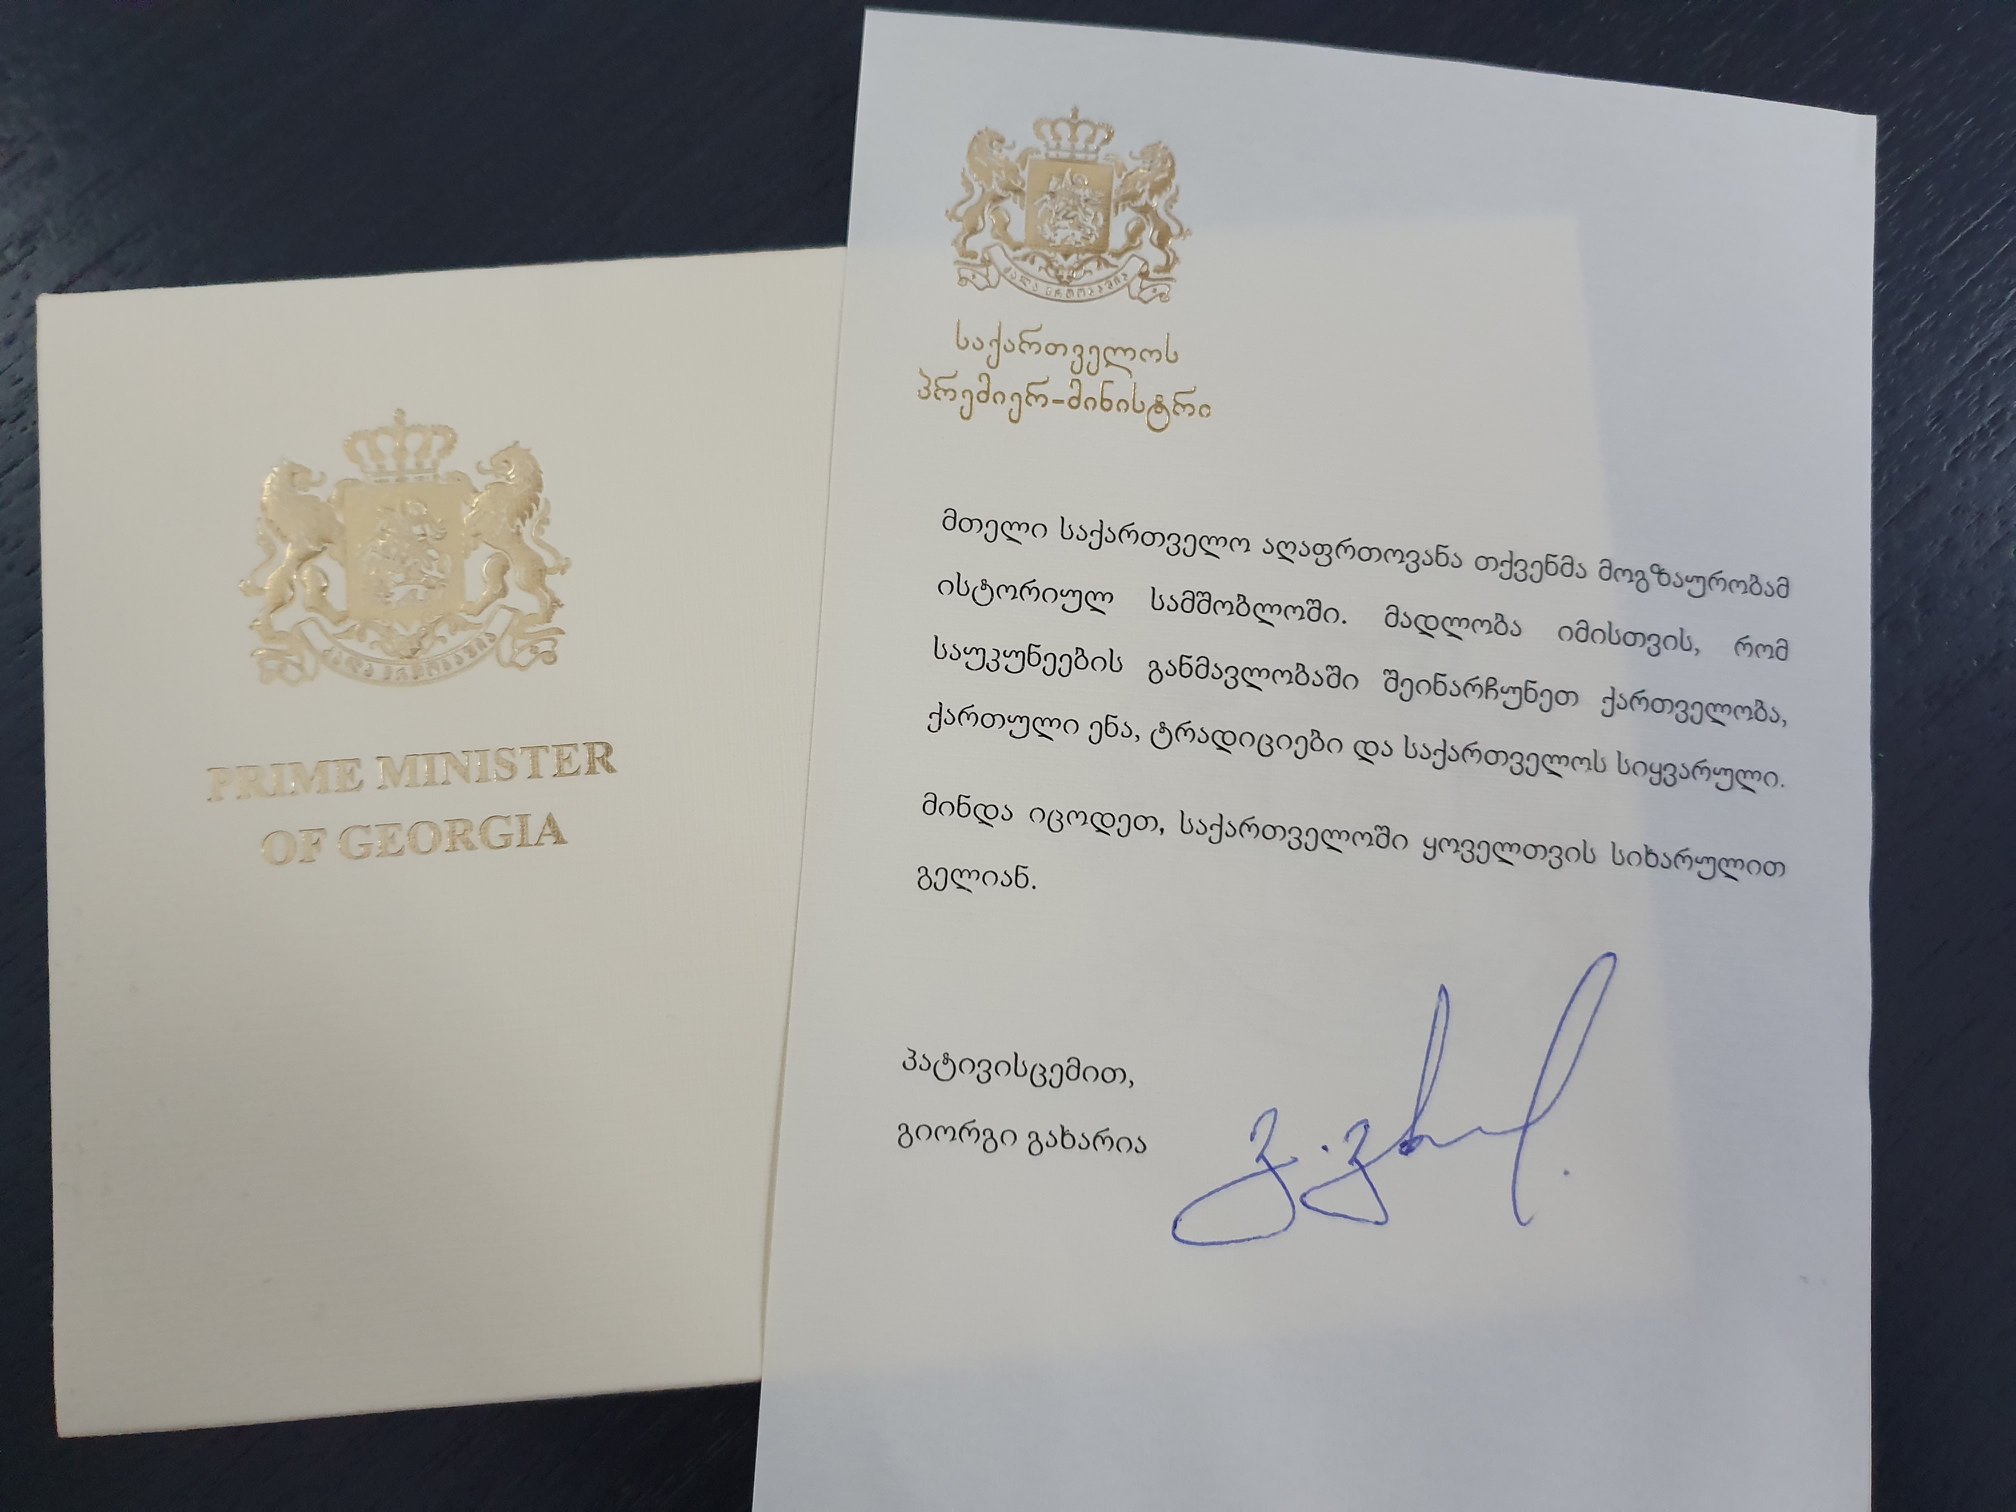 PRIME MINISTER
OF GEORGIA
ძალა ერთობაშია
საქართველოს
პრემიერ-მინისტრი
მთელი საქართველო აღაფრთოვანა თქვენმა მოგზაურობამ
ისტორიულ სამშობლოში. მადლობა იმისთვის, რომ
საუკუნეების განმავლობაში შეინარჩუნეთ ქართველობა,
ქართული ენა, ტრადიციები და საქართველოს სიყვარული.
მინდა იცოდეთ, საქართველოში ყოველთვის სიხარულით
გელიან.
პატივისცემით,
გიორგი გახარია